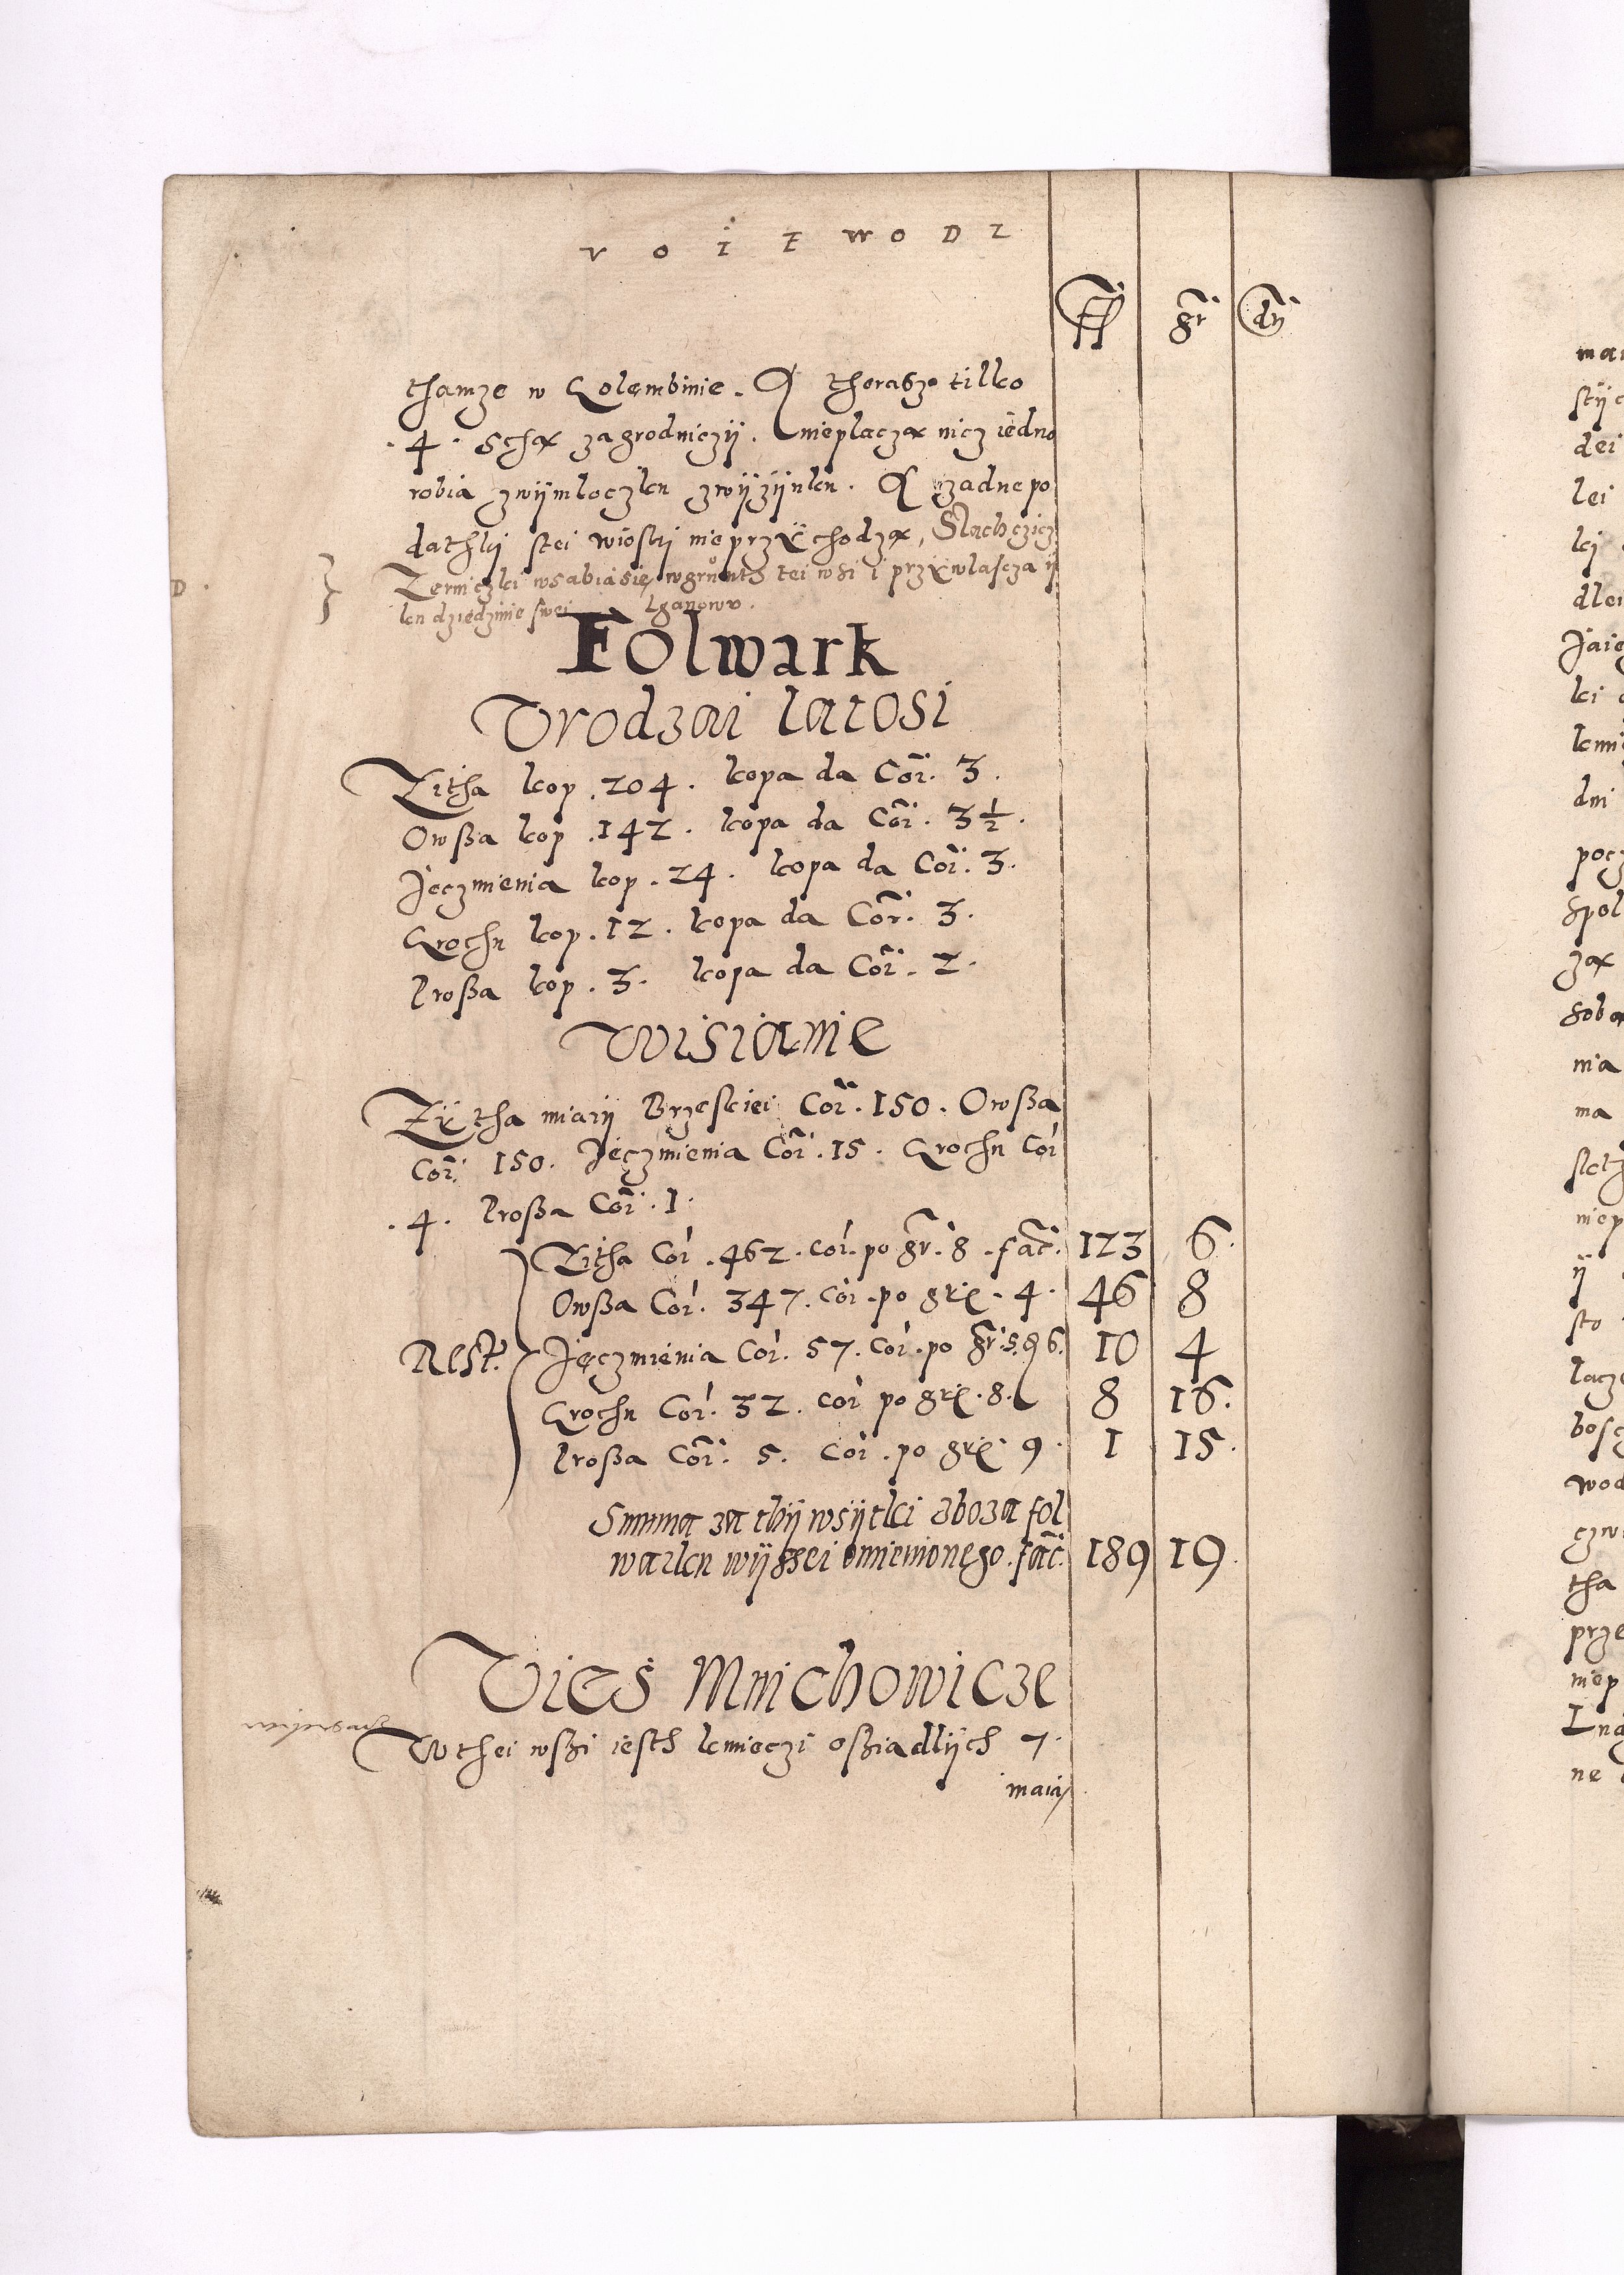 VOIEWODZ
fl gr dn
thamze w Golembinie. A therasze tilko
.4. schą zagrodniczij. nieplaczą nicz iedno
robia zwijmloczku zwijzijnku. A zadne po
dathkij stei wioski nie przÿchodzą, Slachczicz
Zerniczki wsabia się wgrunth tei wsi i przÿwlascza ij
ku dziedzinie swei Lganowo.
D.
Folwark
Vrodzai latosi
Zitha kop .204. kopa da Cor. 3.
Owßa kop .142. kopa da Cor. 3½.
Jęczmienia kop .24. kopa da Cor. 3.
Grochu kop .12. kopa da Cor. 3.
Proßa kop .3. kopa da Cor. 2.
Wisianie
Zÿtha miarij Brzesciei Cor .150. Owßa
Cor. 150. Jęczmienia Cor .15. Grochu Cor
.4. Proßa Cor .1.
Zitha Cor .462. cor. po gr. 8 .fac. 123 6.
Owßa Cor. 347. cor. po grx. 4. 46 8
Rest. Jęczmienia Cor. 57. cor. po gr. 5. 6. 10 4
Grochu Cor. 32. cor po grx. 8. 8 16.
Proßa Cor. 5. cor. po grx 9. 1 15.
Summa za thij wsijtki zboza fol
warku wijssei omienionego. fac. 189 19.
Vies Mnichowicze
W thei wßi iesth kmieczi oßiadlijch 7.
maią